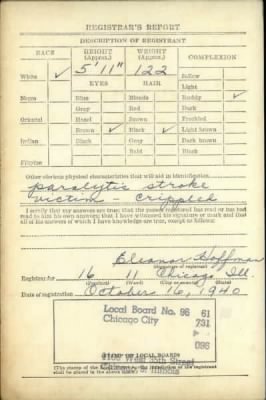 REGISTRAR'S REPORT
DESCRIPTION OF REGISTRANT
RACE HEIGHT (Approx.) WEIGHT (Approx.) COMPLEXION
5' 11" 122
White ✓ Sallow
EYES HAIR Light
Negro Blue Blonde Ruddy ✓
Gray Red Dark
Oriental Hazel Brown Freckled
Brown ✓ Black ✓ Light brown
Indian Black Gray Dark brown
Bald Black
Filipino
Other obvious physical characteristics that will aid in identification
paralytic stroke
victim - crippled
I certify that my answers are true; that the person registered has read or has had
read to him his own answers; that I have witnessed his signature or mark and that
all of his answers of which I have knowledge are true, except as follows:
Eleanor Hoffman
(Signature of registrar)
Registrar for 16 11 Chicago Ill.
(Precinct) (Ward) (City or county) (State)
Date of registration October 16, 1940
Local Board No. 96 61
Chicago City 731
West 35th Street
Illinois
(STAMP OF LOCAL BOARD)
(The stamp of the Local Board having jurisdiction of the registrant
shall be placed in the above space)